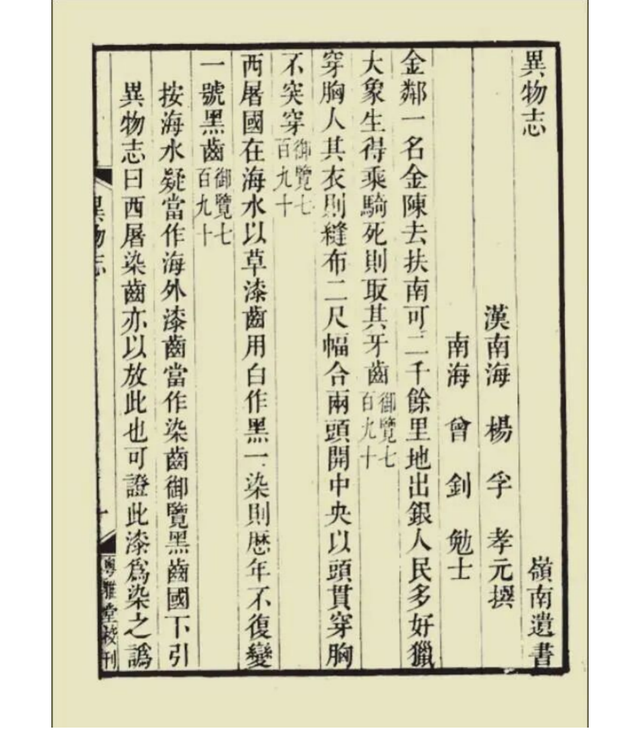 異物志 嶺南遺書
漢南海 楊孚 孝元撰
南海 曾釗 勉士
金鄰一名金陳去扶南可二千餘里地出銀人民多好獵
大象生得乘騎死則取其牙齒御覽七百九十
穿胸人其衣則縫布二尺幅合兩頭開中央以頭貫穿胸
不突穿御覽七百九十
西屠國在海水以草漆齒用白作黑一染則歷年不復變
一號黑齒御覽七百九十
按海水疑當作海外漆齒當作染齒御覽黑齒國下引
異物志曰西屠染齒亦以放此也可證此漆爲染之譌
異物志
粵雅堂校刊